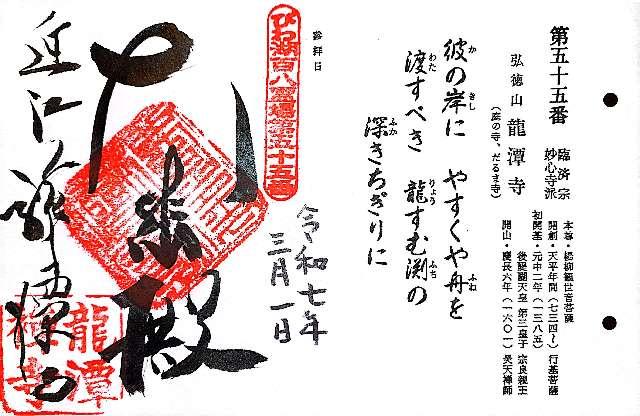 第五十五番
臨済宗
妙心寺派
弘徳山 龍潭寺
(庭の寺、だるま寺)
本尊・楊柳観世音菩薩
開創・天平年間(七三四〜)行基菩薩
初開基・元中二年(一三八五)
後醍醐天皇 第三皇子 宗良親王
開山・慶長六年(一六〇一)昊天禅師
彼の岸に やすくや舟を
渡すべき 龍すむ渕の
深きちぎりに
かきし
ふね
わた
りょう
ふち
ふか
参拝日
令和七年
三月一日
びわ湖百八霊場第五十五番
殿
近江
龍潭
禅寺